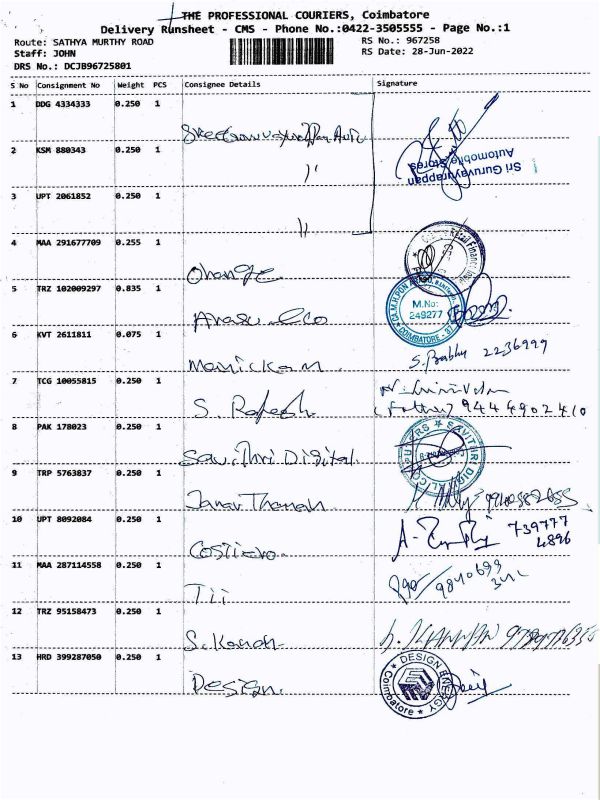 THE PROFESSIONAL COURIERS, Coimbatore
Delivery Runsheet - CMS - Phone No.:0422-3505555 - Page No.:1
Route: SATHYA MURTHY ROAD RS No.: 967258
Staff: JOHN RS Date: 28-Jun-2022
DRS No.: DCJB96725801
S No Consignment No Weight PCS Consignee Details Signature
1 DDG 4334333 0.250 1
2 KSM 880343 0.250 1
Sri Guruvayurappan
Automobile Stores
3 UPT 2061852 0.250 1
4 MAA 291677709 0.255 1
Orange
5 TRZ 102009297 0.835 1
M.No:
249277
COIMBATORE - 37
Arasu &co
6 KVT 2611811 0.075 1
Manickam S. Prabhu 2236999
7 TCG 10055815 0.250 1
S. Rajesh (Father) 9444902410
8 PAK 178023 0.250 1
SAVITHRI DIGITAL
Savithri Digital
9 TRP 5763837 0.250 1
10 UPT 8092084 0.250 1
739777
4896
11 MAA 287114558 0.250 1
9840699
Tii
12 TRZ 95158473 0.250 1
S. Kannan
13 HRD 399287050 0.250 1
DESIGN ENERGY
Coimbatore
Design